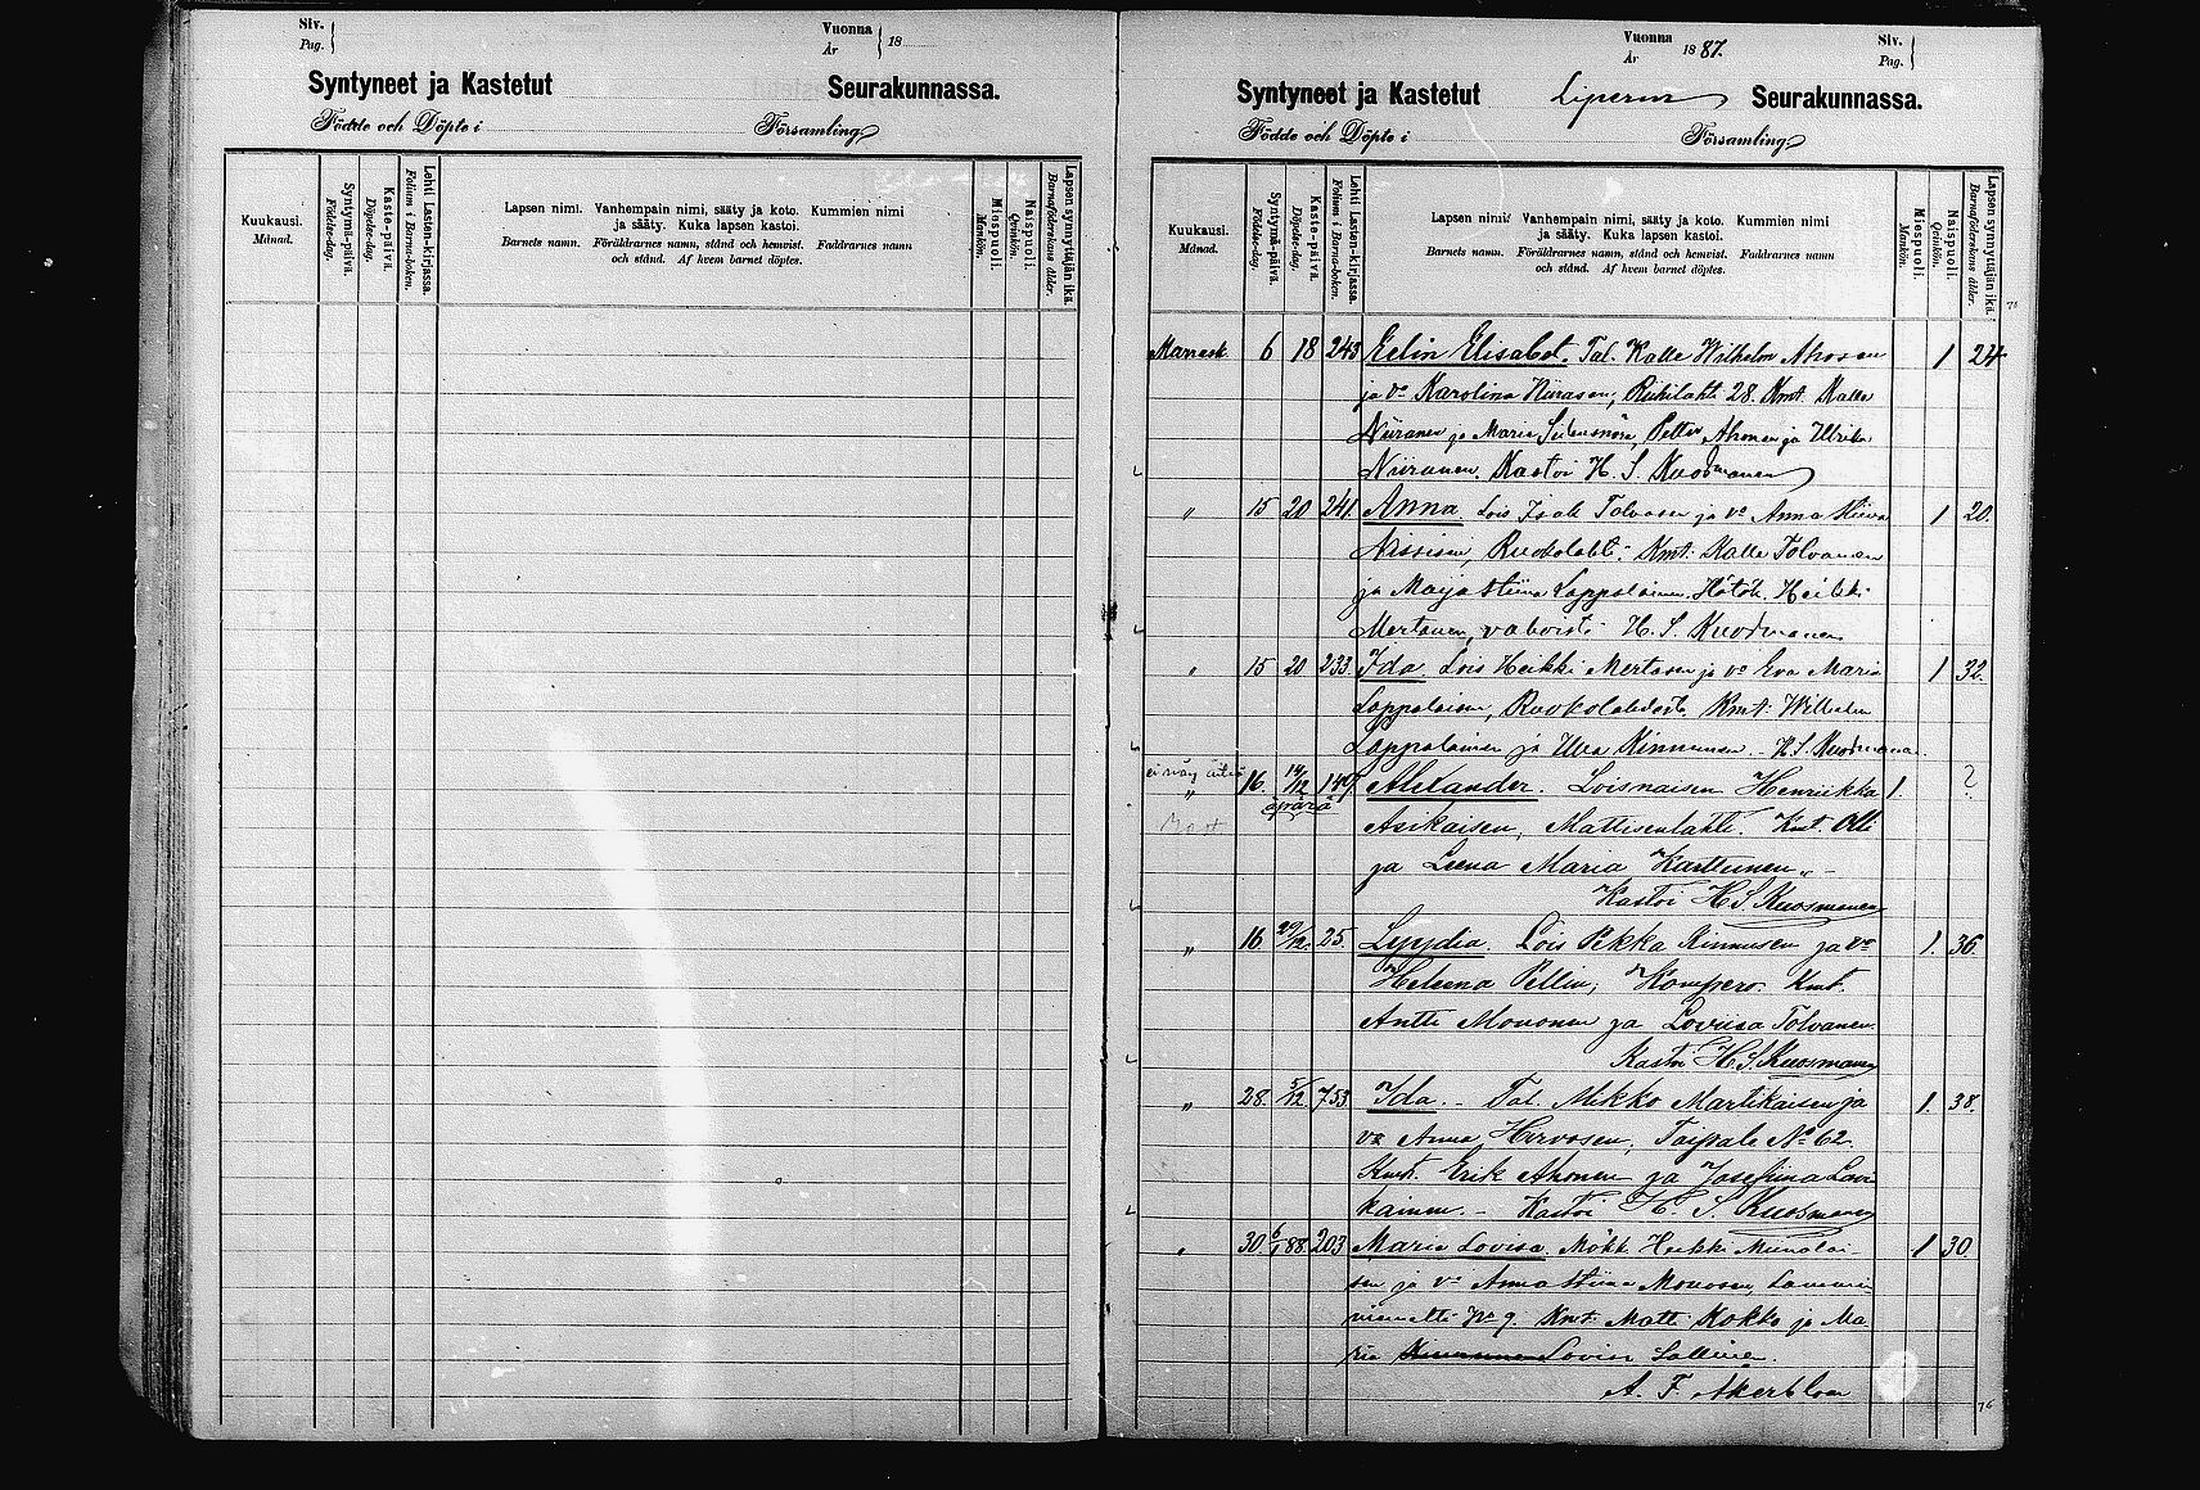 Siv.
Pag.
Vuonna
År
18
Syntyneet ja Kastetut Seurakunnassa.
Födde och Döpte i Församling.
Kuukausi.
Månad.
Syntymä-päivä.
Födelse-dag.
Kaste-päivä.
Döpelse-dag.
Lehti Lasten-kirjassa.
Folium i Barna-boken.
Lapsen nimi. Vanhempain nimi, sääty ja koto. Kummien nimi
ja sääty. Kuka lapsen kastoi.
Barnets namn. Föräldrarnes namn, stånd och hemvist. Faddrarnes namn
och stånd. Af hvem barnet döptes.
Miespuoli.
Mankön.
Naispuoli.
Qvinkön.
Lapsen synnyttäjän ikä.
Barnaföderskans ålder.
Vuonna
År
1887.
Siv.
Pag.
Syntyneet ja Kastetut Liperin Seurakunnassa.
Födde och Döpte i Församling.
Kuukausi.
Månad.
Syntymä-päivä.
Födelse-dag.
Kaste-päivä.
Döpelse-dag.
Lehti Lasten-kirjassa.
Folium i Barna-boken.
Lapsen nimi. Vanhempain nimi, sääty ja koto. Kummien nimi
ja sääty. Kuka lapsen kastoi.
Barnets namn. Föräldrarnes namn, stånd och hemvist. Faddrarnes namn
och stånd. Af hvem barnet döptes.
Miespuoli.
Mankön.
Naispuoli.
Qvinkön.
Lapsen synnyttäjän ikä.
Barnaföderskans ålder.
Marrask. 6 18 243 Eelin Elisabet. Tal. Kalle Wilhelm Ahosen 1 24
ja vo Karolina Niirasen, Riihilahti 28. Kmt. Kalle
Niiranen ja Maria, Petter Ahonen ja Ulrika
Niiranen. Kastoi H. S. Kuosmanen
" 15 20 241. Anna. Lois Isak Tolvasen ja vo Anna Stiina 1 20.
Nissisen, Ruokolahti. Kmt: Kalle Tolvanen
ja Maija Stiina Lappalainen. Hätäk. Heikki
Mertanen, vahvisti H. S. Kuosmanen
" 15 20 233. Ida. Lois Heikki Mertasen ja vo Eva Maria 1 32.
Lappalaisen, Ruokolahdesta. Kmt: Wilhelm
Lappalainen ja Ulla Kinnunen. - H. S. Kuosmanen.
ei näy äitiä
" 16. 14/12 149. Alexander. Loisnaisen Henriikka 1. ?
äpärä
Asikaisen, Mattisenlahti. Kmt. Olli
ja Leena Maria Karttunen. -
Kastoi H. S. Kuosmanen
" 16. 29/12. 25. Lyydia. Lois Pekka Kinnusen ja vo 1. 36.
Heleena Pellin, Kompero. Kmt.
Antti Mononen ja Loviisa Tolvanen.
Kastoi H. S. Kuosmanen
" 28. 5/12. 753. Ida. - Tal. Mikko Martikaisen ja 1. 38.
vo Anna Hirvosen, Taipale No 62.
Kmt. Erik Ahonen ja Josefiina Lavi
kainen. - Kastoi H. S. Kuosmanen
" 30. 6/1 88. 203 Maria Lovisa. Mökk. Heikki Miinalai- 1 30.
sen ja vo Anna Stiina Monosen, Lamminniemeltä No 9. Kmt: Matti Kokko ja Ma-
ria Lovisa Sallinen.
A. F. Åkerblom
76